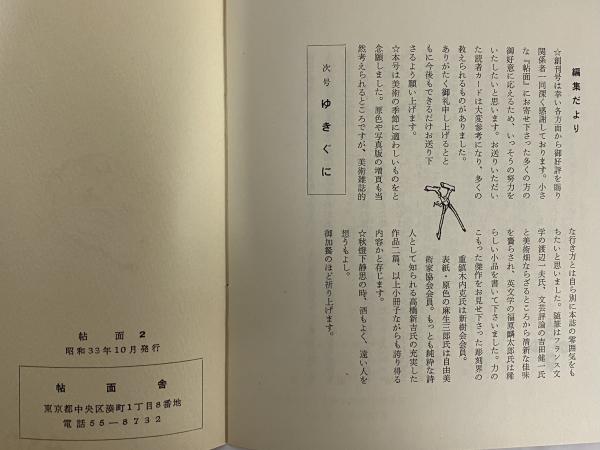 編集だより
☆創刊号は幸い各方面から御好評を賜り
関係者一同深く感謝しております。小さ
な『帖面』にお寄せ下さった多くの方の
御好意に応えるため、いっそうの努力を
いたしたいと思います。お送りいただい
た読者カードは大変参考になり、多くの
教えられるものがありました。
ありがたく御礼申し上げるとと
もに今後もできるだけお送り下
さるよう願い上げます。
☆本号は美術の季節に適わしいものをと
念願しました。原色や写真版の増頁も当
然考えられるところですが、美術雑誌的
次号 ゆきぐに
な行き方とは自ら別に本誌の雰囲気をも
ちたいと思いました。随筆はフランス文
学の渡辺一夫氏、文芸評論の吉田健一氏
と美術畑ならざるところから清新な佳味
を齎らされ、英文学の福原麟太郎氏は稀
らしい小品を書いて下さいました。力の
こもった傑作をお見せ下さった彫刻界の
重鎮木内克氏は新樹会会員。
表紙・原色の麻生三郎氏は自由美
術家協会会員。もっとも純粋な詩
人として知られる高橋新吉氏の充実した
作品二篇、以上小冊子ながらも誇り得る
内容かと存じます。
☆秋燈下静思の時、酒もよく、遠い人を
想うもよし。
御加餐のほど祈り上げます。
帖面2
昭和33年10月発行
帖面舎
東京都中央区湊町1丁目8番地
電話55―8732